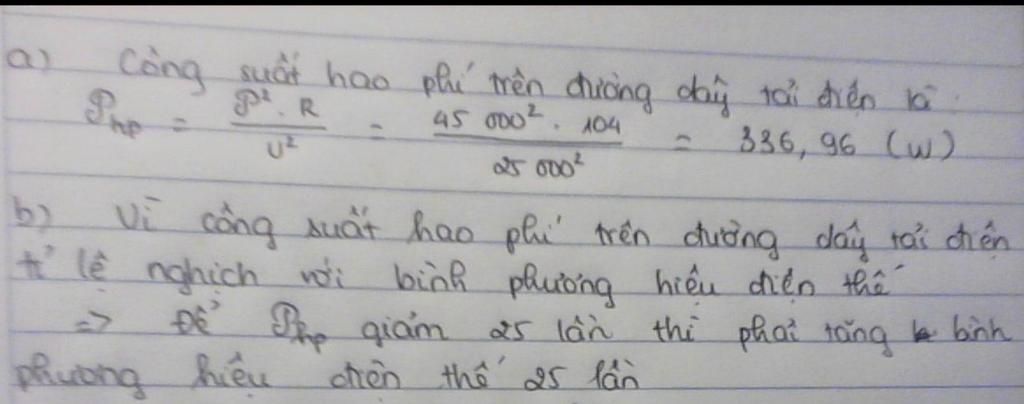 a) Công suất hao phí trên đường dây tải điện là
𝒫hp = 𝒫². R / U² = 45 000². 104 / 25 000² = 336,96 (W)
b) Vì công suất hao phí trên đường dây tải điện
tỉ lệ nghịch với bình phương hiệu điện thế
=> Để 𝒫hp giảm 25 lần thì phải tăng bình
phương hiệu điện thế 25 lần